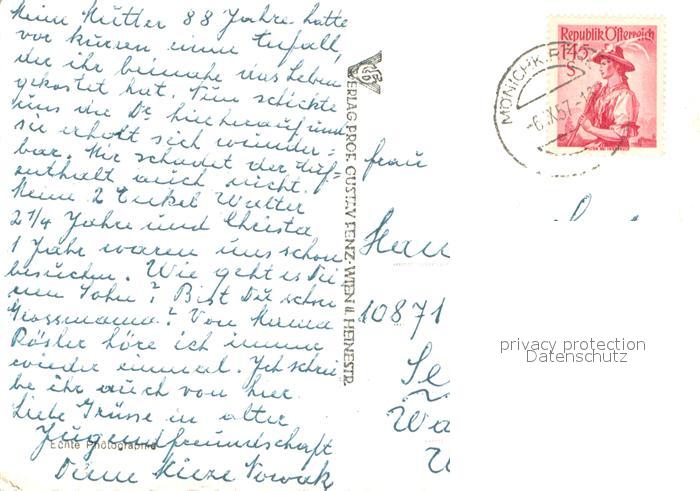 Meine Mutter 88 Jahre hatte
vor kurzem einen Unfall,
der ihr beinahe das Leben
gekostet hat. Nun schickte
uns der Dr hierherauf und
sie erholt sich wunder=
bar. Mir schadet der Auf=
enthalt auch nicht.
Meine 2 Enkel Walter
2 1/4 Jahre und Christa
1 Jahr waren uns schon
besuchen. Wie geht es Dei
nem Sohn? Bist Du schon
Grossmama? Von
Rösler höre ich immer
wieder einmal. Ich schrei
be ihr auch von hier.
Liebe Grüsse in alter
Jugendfreundschaft
Deine Mieze Nowak
Echte Photographie
VERLAG PROF. GUSTAV FENZ. WIEN II. HEINESTR.
Republik Österreich
1·45
S
MÖNICHK
-6.X.57-
Frau
10871
privacy protection
Datenschutz